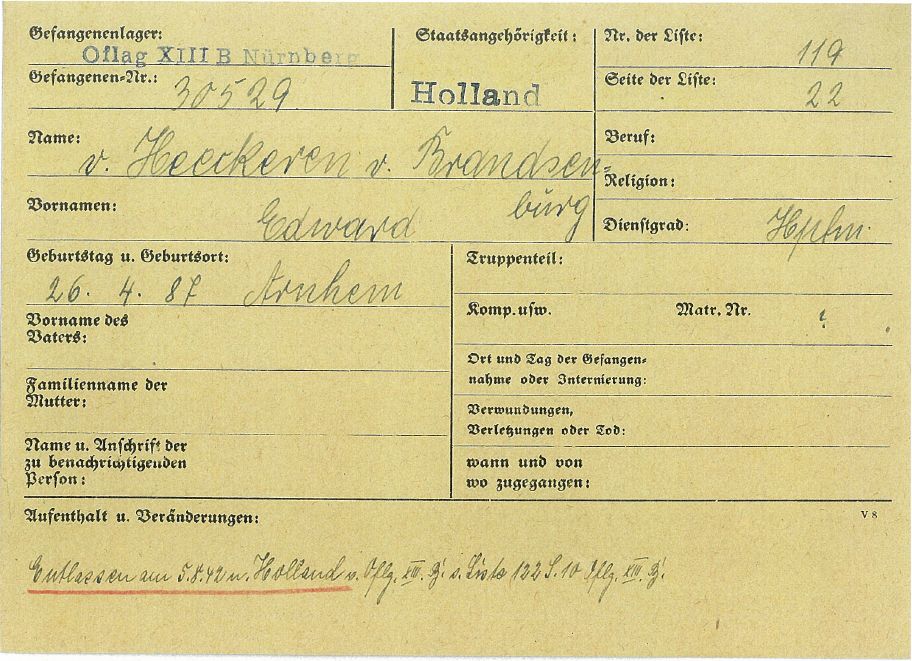 Gefangenenlager:
Oflag XIII B Nürnberg
Gefangenen-Nr.:
30529
Staatsangehörigkeit:
Holland
Nr. der Liste:
119
Seite der Liste:
22
Name:
v. Heeckeren v. Brandsen-
burg
Vornamen:
Edward
Beruf:
Religion:
Dienstgrad: Hptm.
Geburtstag u. Geburtsort:
26. 4. 87 Arnhem
Vorname des
Vaters:
Familienname der
Mutter:
Name u. Anschrift der
zu benachrichtigenden
Person:
Truppenteil:
Komp. usw. Matr. Nr. ?
Ort und Tag der Gefangen-
nahme oder Internierung:
Verwundungen,
Verletzungen oder Tod:
wann und von
wo zugegangen:
Aufenthalt u. Veränderungen:
V 8
Entlassen am 5.8.42 n. Holland v. Oflg. XIII. B. s. Liste 122 S. 10 Oflg. XIII. B.